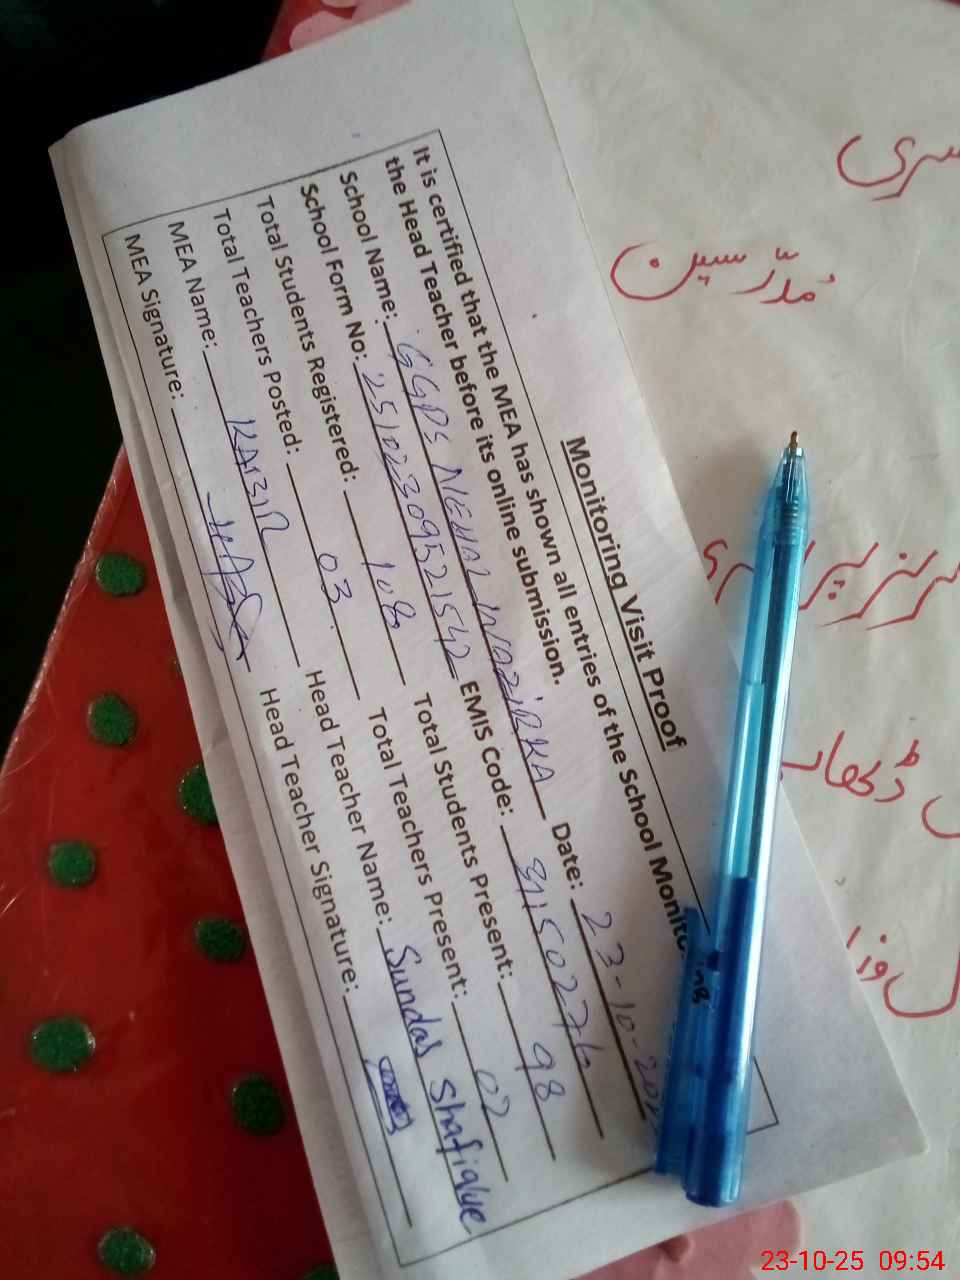 Monitoring Visit Proof
It is certified that the MEA has shown all entries of the School Monitoring
the Head Teacher before its online submission.
School Name: GGPS NEHAL WAZIRKA Date: 23-10-20
School Form No: 25102309521542 EMIS Code:
Total Students Registered: 108 Total Students Present: 98
Total Teachers Posted: 03 Total Teachers Present: 02
MEA Name: KABIR Head Teacher Name: Sundas Shafique
MEA Signature: Head Teacher Signature:
سری
مدثر سین
گرلز پرائمری
ڈھاب
ل وز
23-10-25 09:54